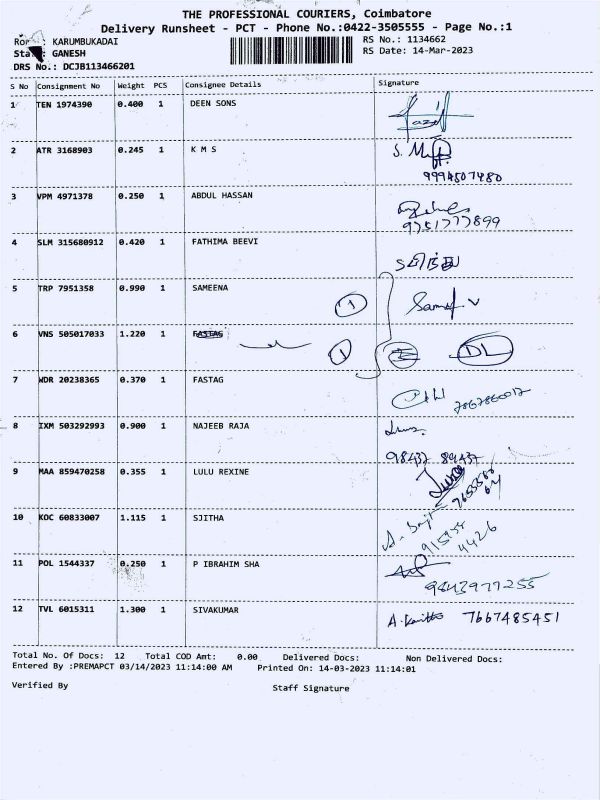 THE PROFESSIONAL COURIERS, Coimbatore
Delivery Runsheet - PCT - Phone No.:0422-3505555 - Page No.:1
KARUMBUKADAI RS No.: 1134662
GANESH RS Date: 14-Mar-2023
DRS No.: DCJB113466201
S No Consignment No Weight PCS Consignee Details Signature
1 TEN 1974390 0.400 1 DEEN SONS
2 ATR 3168903 0.245 1 K M S
9994507480
3 VPM 4971378 0.250 1 ABDUL HASSAN
9751777899
4 SLM 315680912 0.420 1 FATHIMA BEEVI
5 TRP 7951358 0.990 1 SAMEENA
1
6 VNS 505017033 1.220 1 FASTAG
1 DL
7 WDR 20238365 0.370 1 FASTAG
8 IXM 503292993 0.900 1 NAJEEB RAJA
98437 89437
9 MAA 859470258 0.355 1 LULU REXINE
10 KOC 60833007 1.115 1 SJITHA
11 POL 1544337 0.250 1 P IBRAHIM SHA
9843977255
12 TVL 6015311 1.300 1 SIVAKUMAR 7667485451
Total No. Of Docs: 12 Total COD Amt: 0.00 Delivered Docs: Non Delivered Docs:
Entered By :PREMAPCT 03/14/2023 11:14:00 AM Printed On: 14-03-2023 11:14:01
Verified By Staff Signature